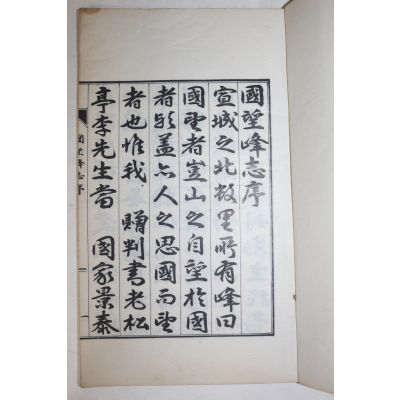 國望峰志序
宣城之北数里所有峰曰
國望者豈山之自望於國
者欤盖亦人之思國而望
者也惟我 贈判書老松
亭李先生當 國家景泰
國望峰志序 一